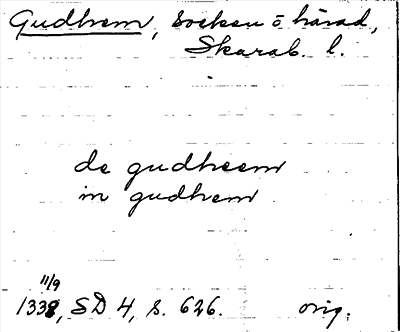 Gudhem, socken o härad,
Skarab. l.
de gudheem
in gudhem
11/9
1338, SD 4, s. 626. orig.